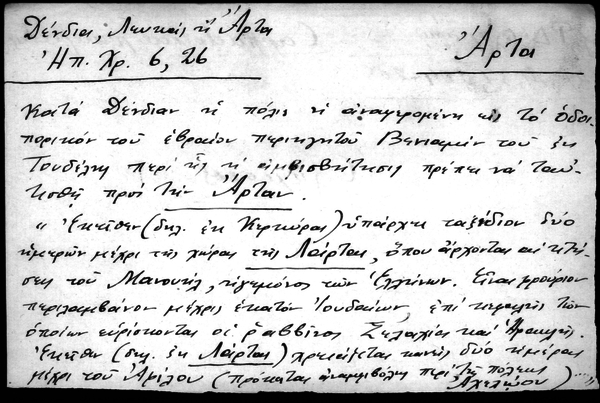 Δένδια, Λευκὰς ἢ Ἄρτα
Ἠπ. Χρ. 6, 26
Ἄρτα
Κατὰ Δένδιαν ἡ πόλις ἡ ἀναφερομένη εἰς τὸ ὁδοι-
πορικὸν τοῦ ἑβραίου περιηγητοῦ Βενιαμὶν τοῦ ἐκ
Τουδέλης περὶ ἧς ἡ ἀμφισβήτησις πρέπει νὰ ταυ-
τισθῇ πρὸς τὴν Ἄρταν.
" Ἐκεῖθεν (δηλ. ἐκ Κερκύρας) ὑπάρχει ταξείδιον δύο
ἡμερῶν μέχρι τῆς χώρας τῆς Λάρτας, ὅπου ἄρχονται αἱ κτή-
σεις τοῦ Μανουήλ, ἡγεμόνος τῶν Ἑλλήνων. Εἶναι φρούριον
περιλαμβάνον μέχρις ἑκατὸν Ἰουδαίων, ἐπὶ κεφαλῆς τῶν
ὁποίων εὑρίσκονται οἱ ῥαββῖνοι Σελαχίας καὶ Ἡρακλῆς.
Ἐκεῖθεν (δηλ. ἐκ Λάρτας) χρειάζεται κανεὶς δύο ἡμέρας
μέχρι τοῦ Ἀχίλου (πρόκειται ἀναμφιβόλως περὶ τῆς πόλεως
Ἀχελῴου) ..."